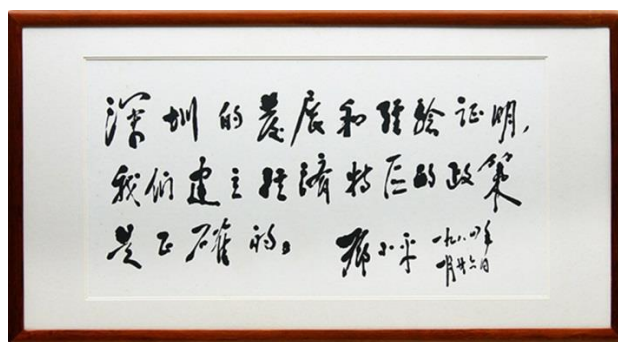 深圳的發展和經驗证明，
我们建立經濟特区的政策
是正確的。 鄧小平 一九八四年
一月廿六日